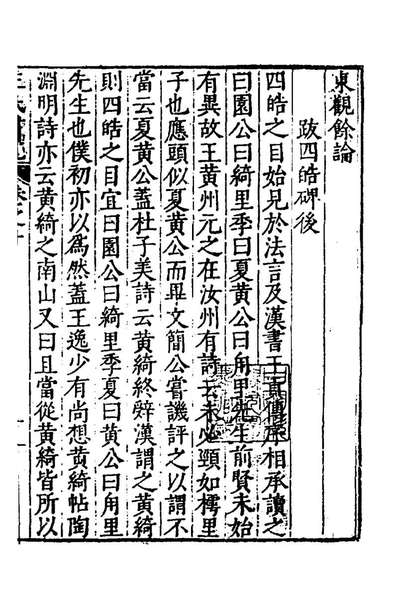 東觀餘論
跋四皓碑後
四皓之目始見於法言及漢書王貢傳序相承讀之
曰園公曰綺里季曰夏黃公曰角里先生前賢未始
有異故王黃州元之在汝州有詩云未必頸如樗里
子也應頭似夏黃公而畢文簡公嘗譏評之以謂不
當云夏黃公蓋杜子美詩云黃綺終辭漢謂之黃綺
則四皓之目宜曰園公曰綺里季夏曰黃公曰角里
先生也僕初亦以爲然蓋王逸少有尚想黃綺帖陶
淵明詩亦云黃綺之南山又曰且當從黃綺皆所以